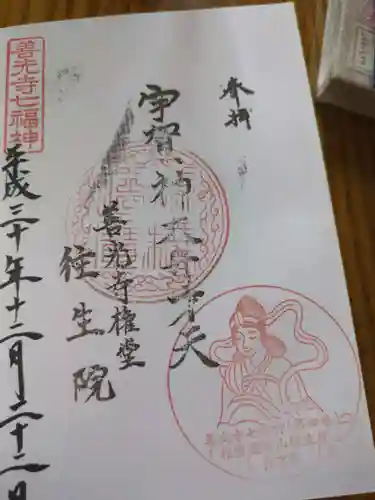 奉拝
宇賀神大弁才天
善光寺権堂
往生院
平成三十年十二月二十二日
善光寺七福神